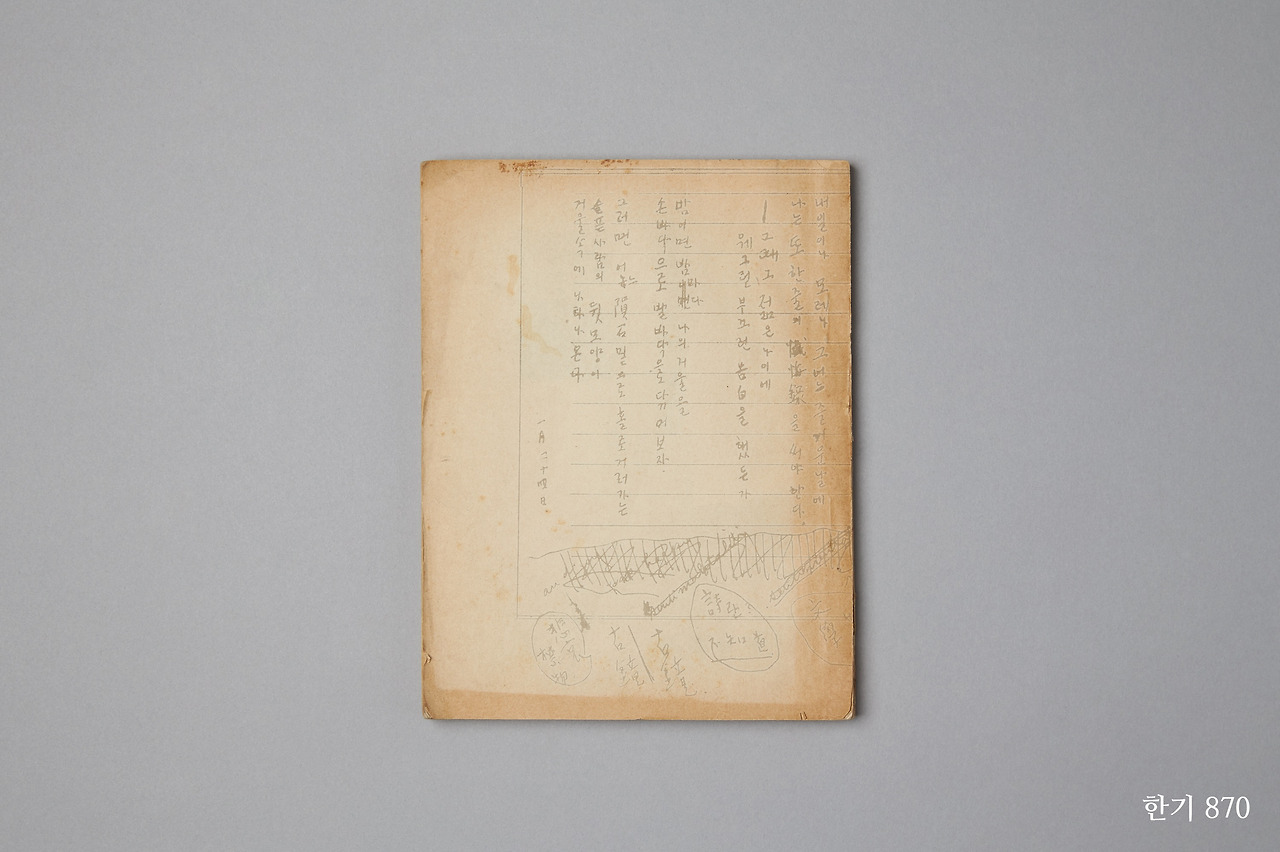 내일이나 모레나 그 어느 즐거운날에
나는 또 한줄의 懺悔錄을 써야한다.
| 그때 그 젊은 나이에
웨그런 부끄런 告白을 했든가
밤이면 밤마다 나의 거울을
손바닥으로 발바닥으로 닦어보자.
그러면 어느 隕石밑으로 홀로거러가는
슬픈사람의 뒷모양이
거울속에 나타나온다.
一月二十四日.
詩란?
不知道
古鏡
古鏡.
悲哀
禁物
한기 870